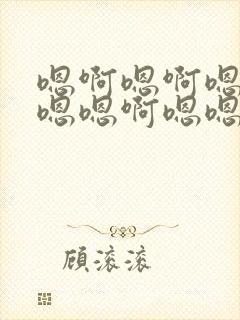 嗯啊嗯啊嗯
嗯嗯啊嗯嗯
顾滚滚